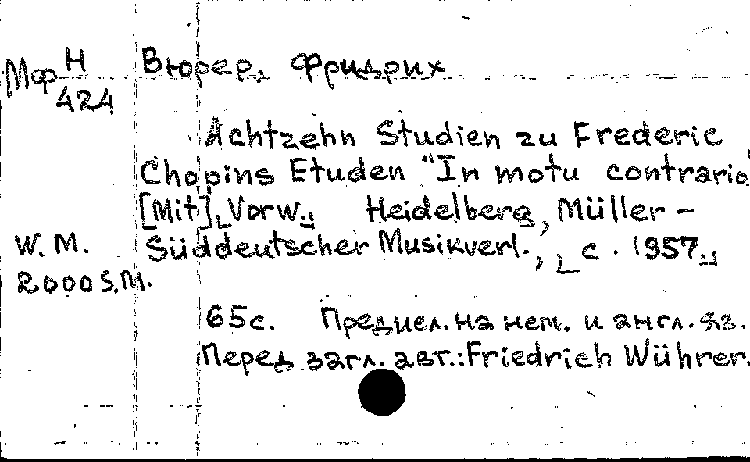 Мф Н 424
Вюрер, Фридрих
Achtzehn Studien zu Frederic
Chopins Etuden "In motu contrario
[Mit] Vorw. Heidelberg, Müller-
Süddeutscher Musikverl., c. 1957.
W. M.
2000 S.M.
65с. Предисл. на нем. и англ. яз.
Перед загл. авт.: Friedrich Wührer.